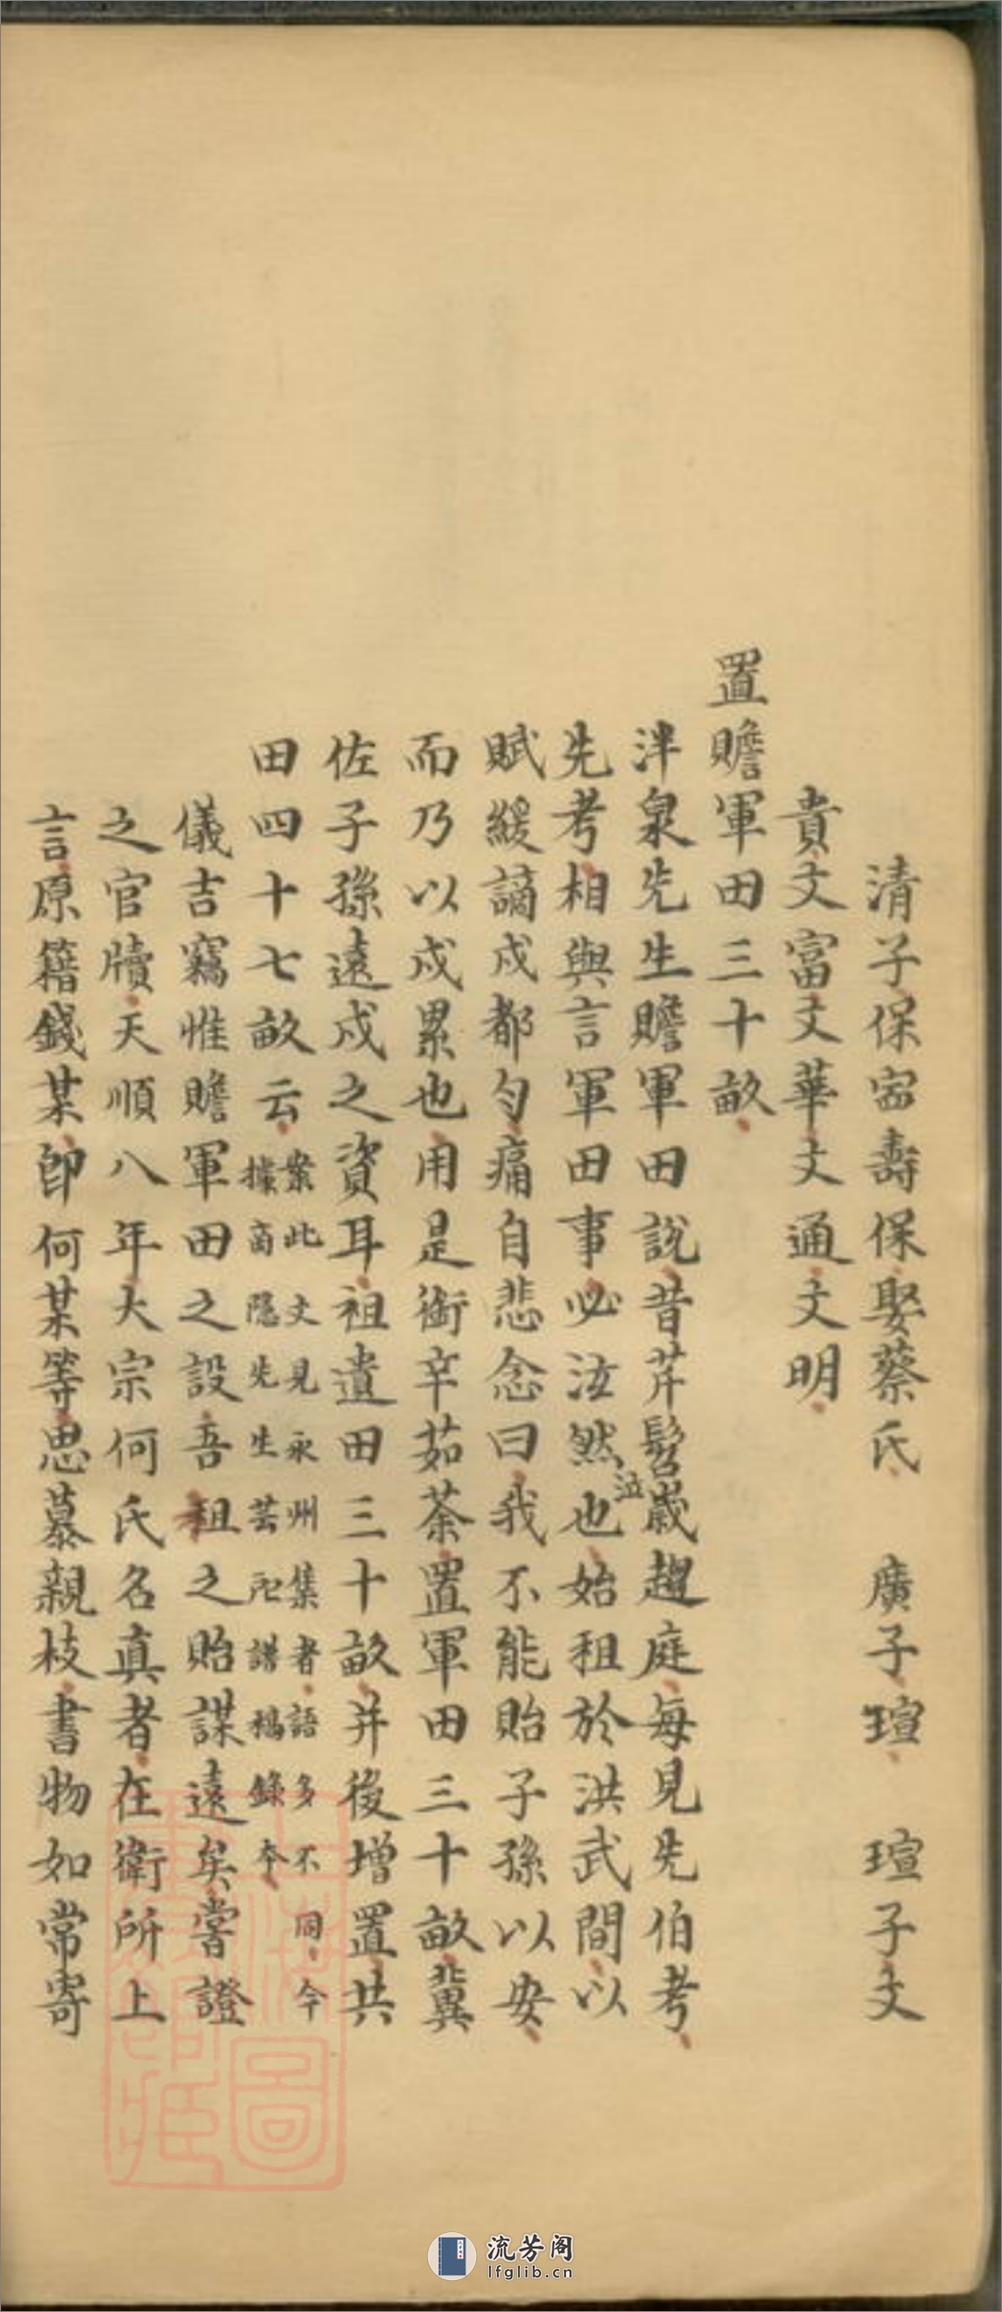 清子保宻壽保娶蔡氏　廣子瑄　瑄子文
貴文富文華文通文明
置贍軍田三十畝
泮泉先生贍軍田說昔芹髫歲趨庭每見先伯考
先考相與言軍田事必泣然泣也始祖於洪武間以
賦緩謫戍都勻痛自悲念曰我不能貽子孫以安
而乃以戍累也用是銜辛茹荼置軍田三十畝冀
佐子孫遠戍之資耳祖遺田三十畝并後增置共
田四十七畝云
案此文見永州集者語多不同今
據商隐先生芸所譜稿錄本
儀吉竊惟贍軍田之設吾祖之貽謀遠矣嘗證
之官牘天順八年大宗何氏名真者在衛所上
言原籍錢某卽何某等思慕親枝書物如常寄
上海圖書館藏
流芳阁
lfglib.cn